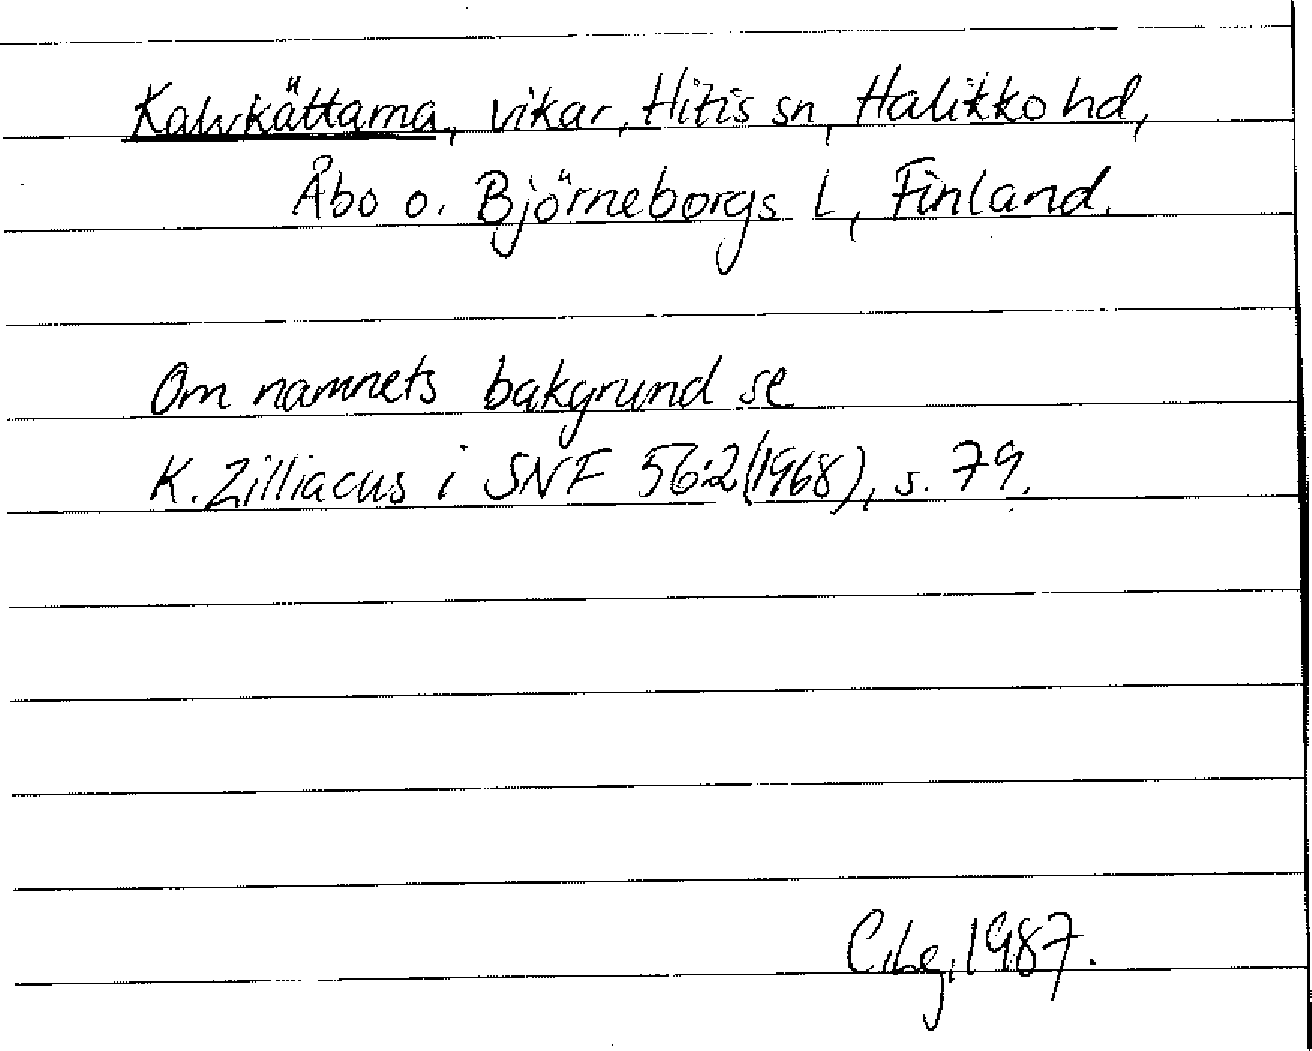 Kalvkättarna, vikar, Hitis sn, Halikko hd,
Åbo o. Björneborgs L, Finland.
Om namnets bakgrund se
K. Zilliacus i SNF 56:2 (1968), s. 79.
C.Lg, 1987.